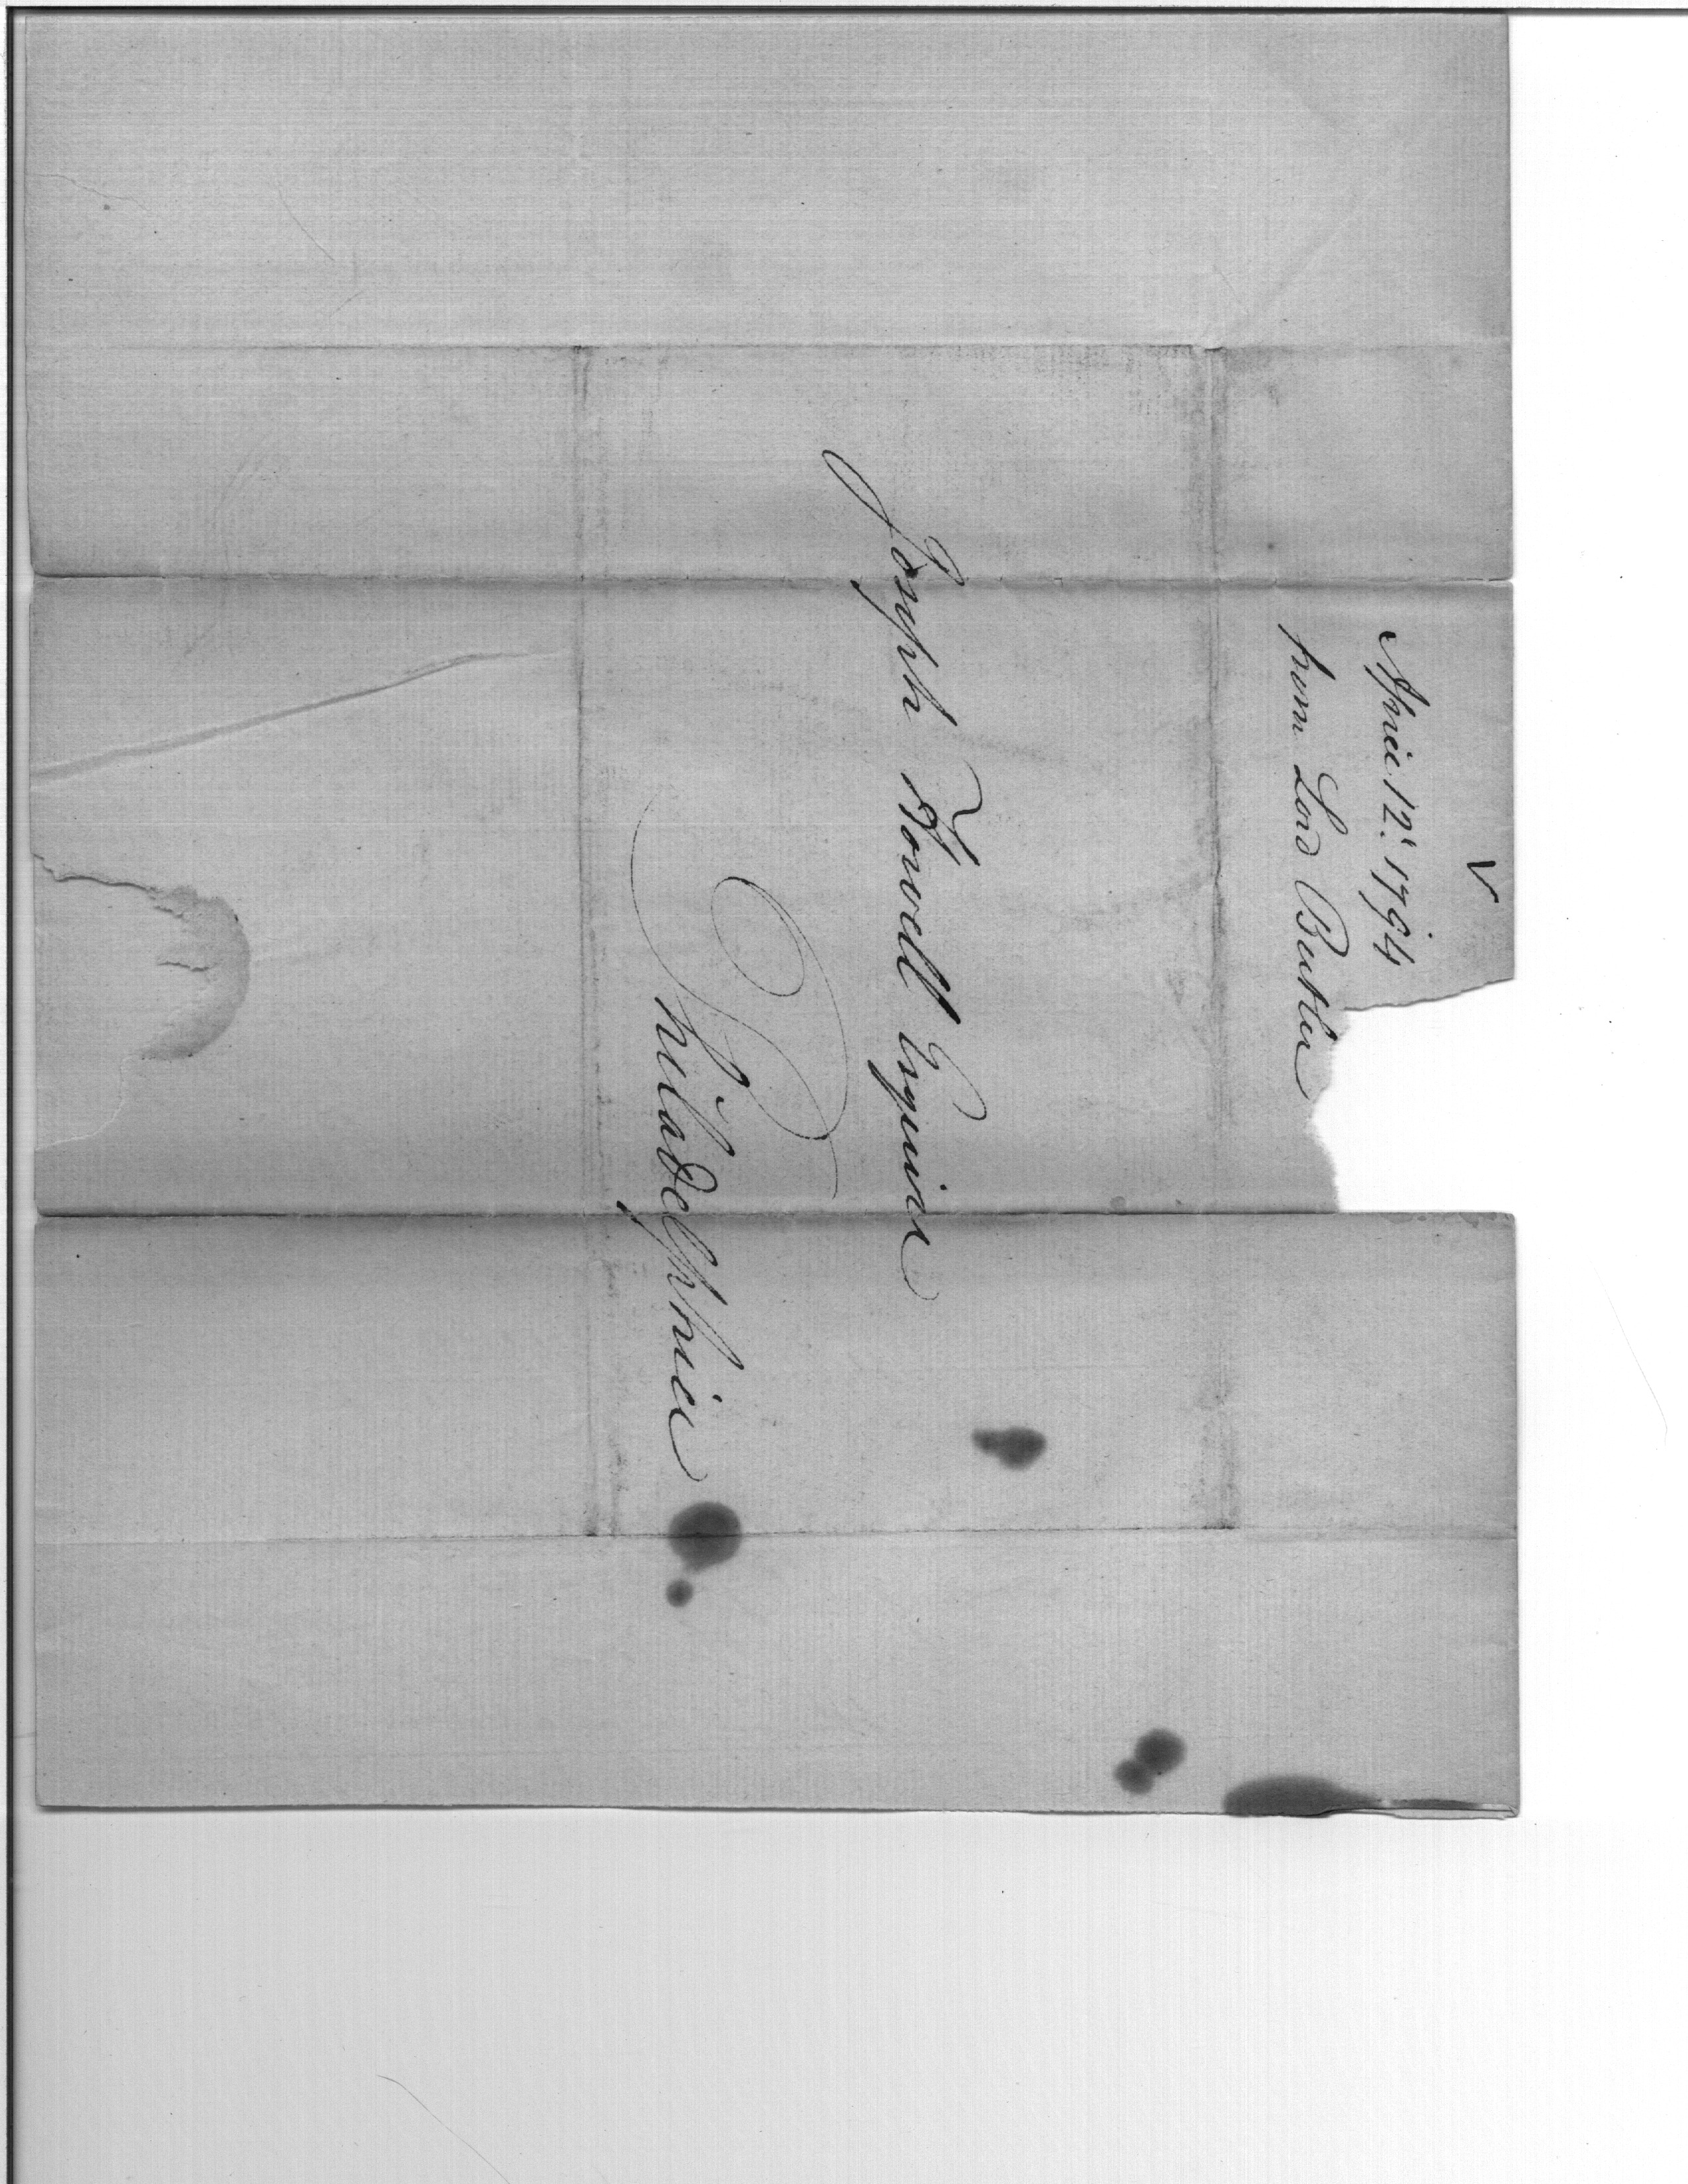 V
April 12.' 1794
from Lord Butler
Joseph Howell Esquire
Philadelphia